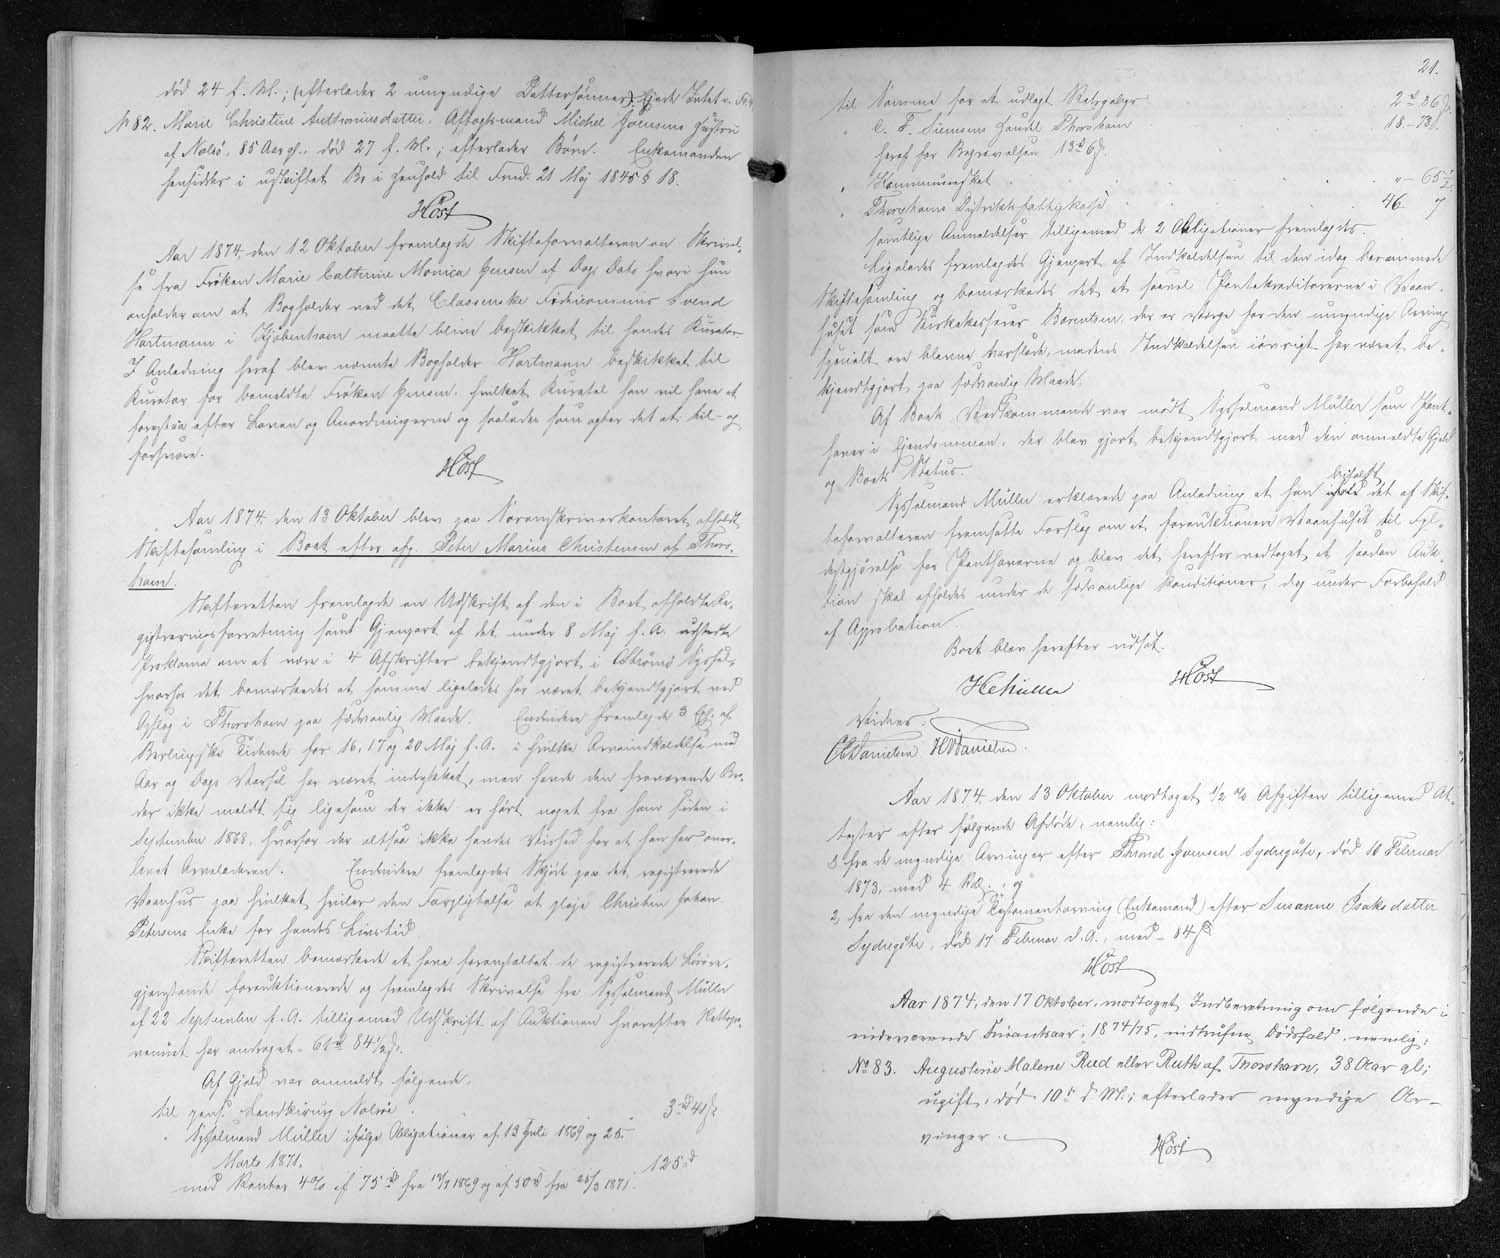 død 24 f. M.; (efterlader 2 umyndige Dattersønner), ejede Intet.
No 82. Marie Christine Anthoniusdatter, Aftægtsmand Michel Joensens Hustru
af Nolsø, 85 Aar gl., død 27 f. M.; efterlader Børn. Enkemanden
hensidder i uskiftet Bo i Henhold til Frnd. 21 Maj 1845 § 18.
Høst
Aar 1874, den 12 Oktober fremlagde Skifteforvalteren en Skrivel-
se fra Frøken Marie Cathrine Monica Jensen af Dags Dato hvori hun
anholder om at Bogholder ved det Classenske Fideicommis Svend
Hartmann i Kjøbenhavn maatte blive beskikket til hendes Kurator.
I Anledning heraf blev nævnte Bogholder Hartmann beskikket til
Kurator for bemeldte Frøken Jensen, hvilket Kuratel han vil have at
forestaa efter Loven og Anordningerne og saaledes som agter det at til- og
forsvare.
Høst
Aar 1874, den 13 Oktober blev paa Sorenskriverkontoret afholdt
Skiftesamling i Boet efter afg. Peter Marius Christensen af Thors-
havn.
Skifteretten fremlagde en Udskrift af den i Boet afholdte Re-
gistreringsforretning samt Gjenpart af det under 8 Maj f. A. udstedte
Proklama om at være i 4 Afskrifter bekjendtgjort i Strømø Syssel,
hvorhos det bemærkedes at samme ligeledes har været bekjendtgjort ved
Opslag i Thorshavn paa sædvanlig Maade. Endvidere fremlagde 3 Expl. af
Berlingske Tidende for 16, 17 og 20 Maj f. A. i hvilke Arveindkaldelse med
Aar og Dags Varsel har været indrykket, men havde den fraværende Bro-
der ikke meldt sig ligesom der ikke er hørt noget fra ham siden i
September 1868, hvorfor der altsaa ikke havdes Vished for at han har over-
levet Arveladeren. Endvidere fremlagdes Skjøde paa det registrerede
Vaanhus paa hvilket hviler den Forpligtelse at pleje Christen Johan
Petersens Enke for hendes Livstid
Skifteretten bemærkede at have foranstaltet de registrerede Løsøre-
gjenstande forauktionerede og fremlagdes Skrivelse fra Sysselmand Müller
af 22 September f. A. tilligemed Udskrift af Auktionen hvorefter Nettopro-
venuet har andraget 61 rd 84 1/2 ß.
Af Gjæld var anmeldt følgende.
til pens. Landkirurg Nolsøe . 3 rd 41 ß
" Sysselmand Müller ifølge Obligationer af 13 Juli 1869 og 25
Marts 1871. 125 rd
med Renter 4% af 75 rd fra 13/7 1869 og af 50 rd fra 25/3 1871.
21.
til Samme for et udlagt Retsgebyr 2 rd 36 ß.
" C. F. Siemsens Handel Thorshavn 18 - 73 ß.
heraf for Begravelsen 13 rd 6 ß.
" Kommuneskat . . . . " - 65 1/2
" Thorshavns Distrikts fattigkasse . . . 46 . 7
samtlige Anmeldelser tilligemed de 2 Obligationer fremlagdes.
Ligeledes fremlagdes Gjenpart af Indkaldelsen til den idag berammede
Skiftesamling og bemærkedes det at saavel Pantekreditorerne i Vaan-
huset som Kirkekasserer Berentsen, der er Værge for den umyndige Arving
specielt ere blevne varslede, medens Indkaldelsen iøvrigt har været be-
kjendtgjort paa sædvanlig Maade.
Af Boets Vedkommende var mødt Sysselmand Müller som Pant-
haver i Ejendommen, der blev gjort bekjendtgjort med den anmeldte Gjæld
og Boets Status.
Sysselmand Müller erklærede paa Anledning at han bifaldt det af Skif-
teforvalteren fremsatte Forslag om at forauktionere Vaanhuset til Fyl-
destgjørelse for Panthaverne og blev det herefter vedtaget at saadan Auk-
tion skal afholdes under de sædvanlige Konditioner, dog under Forbehold
af Approbation.
Boet blev herefter udsat.
HCMüller Høst
Vidner:
Danielsen HDanielsen.
Aar 1874, den 13 Oktober modtoget 1/2 % Afgiften tilligemed At-
tester efter følgende Afdøde, nemlig:
1, fra de myndige Arvinger efter Thrond Joensen Sydregøte, død 10 Februar
1873, med 4 Rd.; og
2, fra den myndige Testamentarving (Enkemand) efter Susanne Isaksdatter
Sydregøte, død 17 Februar d. A., med - 84 ß
Høst
Aar 1874, den 17 Oktober, modtaget Indberetning om følgende i
indeværende Finantsaar, 1874/75, indtrufne Dødsfald, nemlig;
No 83. Augustine Malene Rud eller Ruth af Thorshavn, 38 Aar gl;
ugift, død 10de d. M.; efterlader myndige Ar-
vinger.
Høst